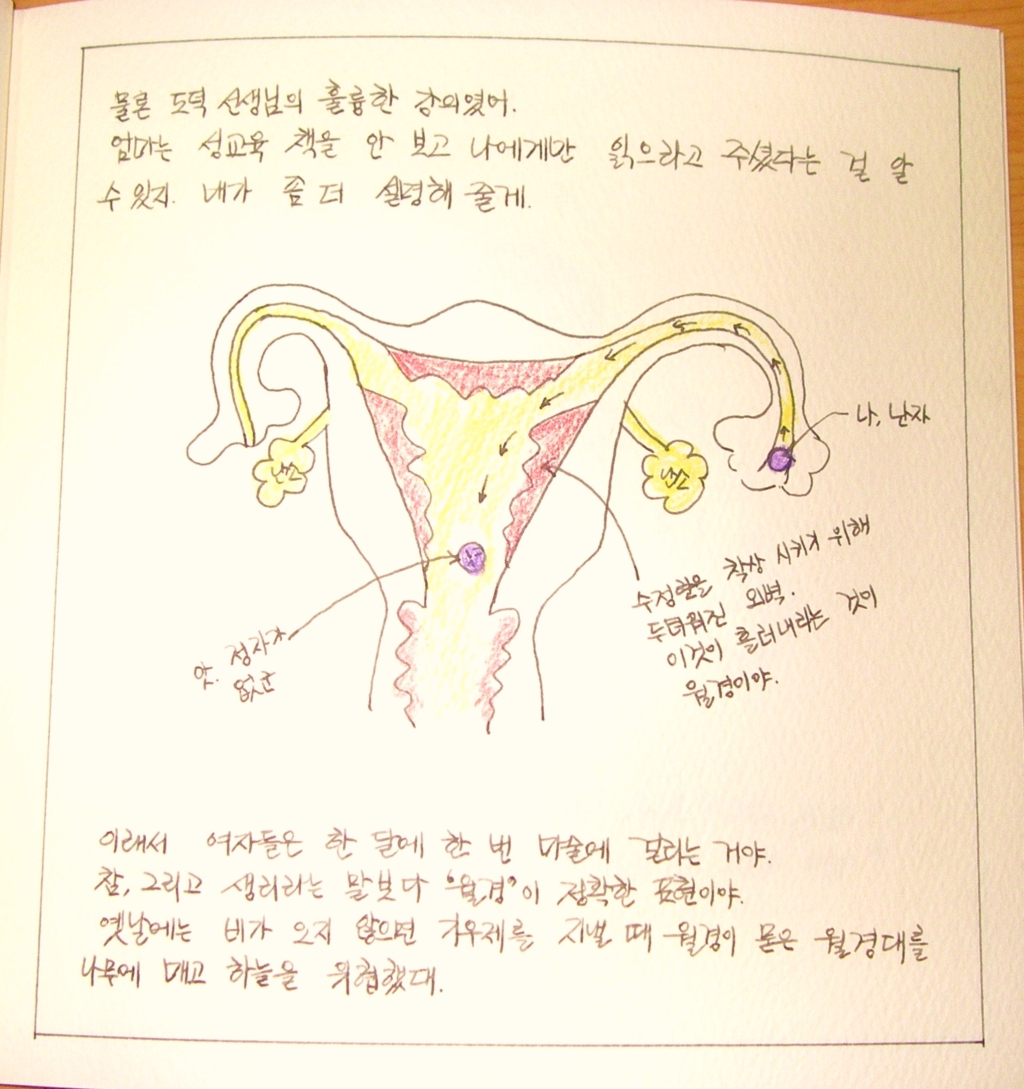 물론 도덕 선생님의 훌륭한 강의였어.
엄마는 성교육 책을 안 보고 나에게만 읽으라고 주셨다는 걸 알
수 있지. 내가 좀 더 설명해 줄게.
나, 난자
난소
난소
수정란을 착상 시키기 위해
두터워진 외벽.
이것이 흘러내리는 것이
월경이야.
앗. 정자가
없군
이래서 여자들은 한 달에 한 번 마술에 걸리는 거야.
참, 그리고 생리라는 말보다 "월경"이 정확한 표현이야.
옛날에는 비가 오지 않으면 기우제를 지낼 때 월경이 묻은 월경대를
나무에 매고 하늘을 위협했대.